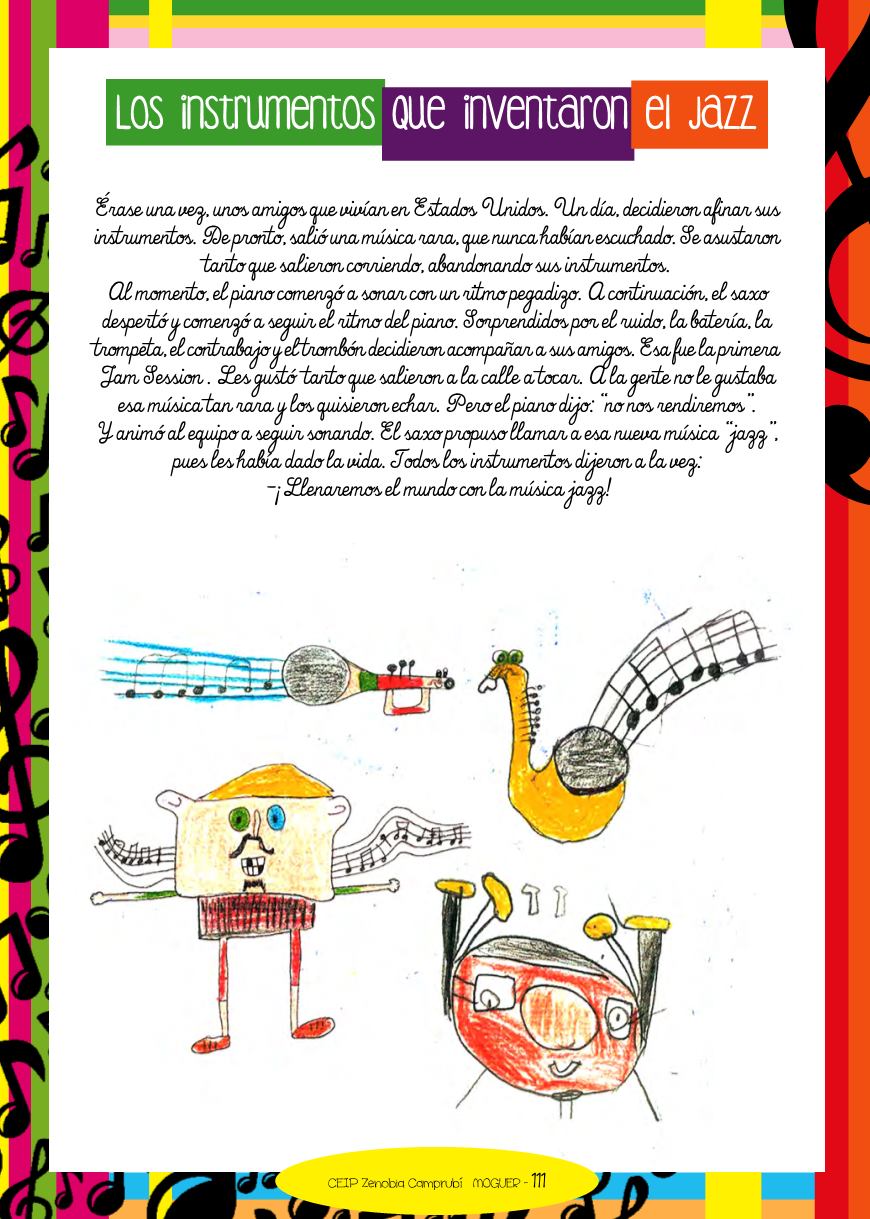 Los instrumentos que inventaron el jazz
Érase una vez, unos amigos que vivían en Estados Unidos. Un día, decidieron afinar sus
instrumentos. De pronto, salió una música rara, que nunca habían escuchado. Se asustaron
tanto que salieron corriendo, abandonando sus instrumentos.
Al momento, el piano comenzó a sonar con un ritmo pegadizo. A continuación, el saxo
despertó y comenzó a seguir el ritmo del piano. Sorprendidos por el ruido, la batería, la
trompeta, el contrabajo y el trombón decidieron acompañar a sus amigos. Esa fue la primera
Jam Session . Les gustó tanto que salieron a la calle a tocar. A la gente no le gustaba
esa música tan rara y los quisieron echar. Pero el piano dijo: “no nos rendiremos”.
Y animó al equipo a seguir sonando. El saxo propuso llamar a esa nueva música “jazz”,
pues les había dado la vida. Todos los instrumentos dijeron a la vez:
-¡Llenaremos el mundo con la música jazz!
CEIP Zenobia Camprubí MOGUER - 111